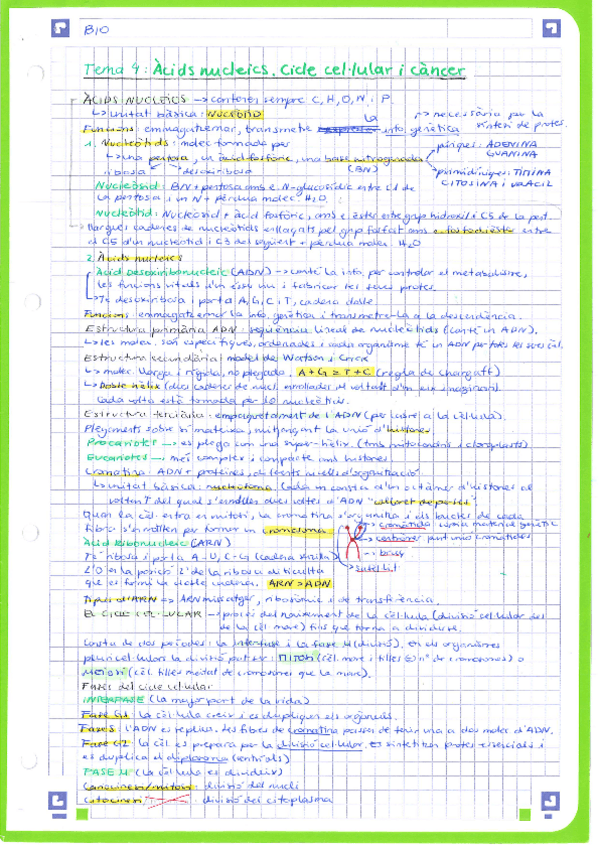 BIO
Tema 4: Àcids nucleics. Cicle cel·lular i càncer
ÀCIDS NUCLEICS → contenen sempre C, H, O, N i P.
↳ unitat bàsica: NUCLEÒTID
Funcions: emmagatzemar, transmetre la info. genètica → necessària per la síntesi de protes.
1. Nucleòtids: molec formada per
↳ una pentosa, un àcid fosfòric, una base nitrogenada (BN)
ribosa desoxiribosa
púriques: ADENINA GUANINA
pirimidíniques: TIMINA CITOSINA i URACIL
Nucleòsid: BN + pentosa amb e. N-glucosídic entre C1 de
la pentosa i un N + pèrdua molec. H2O
Nucleòtid: Nucleòsid + àcid fosfòric, amb e. èster entre grup hidroxil i C5 de la pent.
Llargues cadenes de nucleòtids enllaçats pel grup fosfat amb e. fosfodièster entre
el C5 d'un nucleòtid i C3 del següent + pèrdua molec. H2O
2. Àcids nucleics
Àcid desoxiribonucleic (ADN) → conté la info. per controlar el metabolisme,
les funcions vitals d'un ésser viu i fabricar les seves protes.
↳ Té desoxiribosa i port a A, G, C i T, cadena doble
Funcions: emmagatzemar la info. genètica i transmetre-la a la descendència.
Estructura primària ADN: seqüència lineal de nucleòtids (conté un ADN).
↳ les molec. són específiques, ordenades i cada organisme té un ADN per totes les seves cèl.
Estructura secundària: model de Watson i Crick
↳ molec. llarga i rígida, no plegada. A+G = T+C (regla de Chargaff)
↳ Doble hèlix (dues cadenes de nucl. enrotllades al voltant d'un eix imaginari).
Cada volta està formada per 10 nucleòtis.
Estructura terciària: empaquetament de l'ADN (per cabre a la cèl·lula).
Plegaments sobre si mateixa, mitjançant la unió d'histones
Procariotes → es plega com una super-hèlix. (tmb mitocondris i cloroplasts)
Eucariotes → més complex i compacte amb histones.
Cromatina: ADN + proteïnes, diferents nivells d'organització
↳ unitat bàsica: nucleosoma. Cada un consta d'un octàmer d'histones al
voltant del qual s'enrotllen dues voltes d'ADN "collaret de perles"
Quan la cèl. entra en mitosi, la cromatina s'organitza i els bucles de cada
fibra s'enrotllen per formar un cromosoma
cromàtida: còpia material genètic
centròmer: punt unió cromàtides
braç
satèl·lit
Àcid ribonucleic (ARN)
Té ribosa i port a A-U, C-G (cadena senzilla)
L'O en la posició 2' de la ribosa dificulta
que es formi la doble cadena. ARN > ADN
Tipus d'ARN → ARN missatger, ribosòmic i de transferència.
EL CICLE CEL·LULAR → procés del naixement de la cèl·lula (divisió cel·lular des
de la cèl. mare) fins que torna a dividir-se.
Consta de dos períodes: la interfase i la fase M (divisió). En els organismes
pluricel·lulars la divisió pot ser: MITOSI (cèl. mare i filles = nº de cromosomes) o
MEIOSI (cèl. filles meitat de cromosomes que la mare).
Fases del cicle cel·lular
INTERFASE (la major part de la vida)
Fase G1: la cèl·lula creix i es dupliquen els orgànuls.
Fase S: l'ADN es replica. Les fibres de cromatina passen de tenir una a dos molec d'ADN.
Fase G2: la cèl. es prepara per la divisió cel·lular. Es sintetitzen protes essencials i
es duplica el diplosoma (centríols)
FASE M (la cèl·lula es divideix)
Cariocinesi/mitosi: divisió del nucli
Citocinesi: divisió del citoplasma